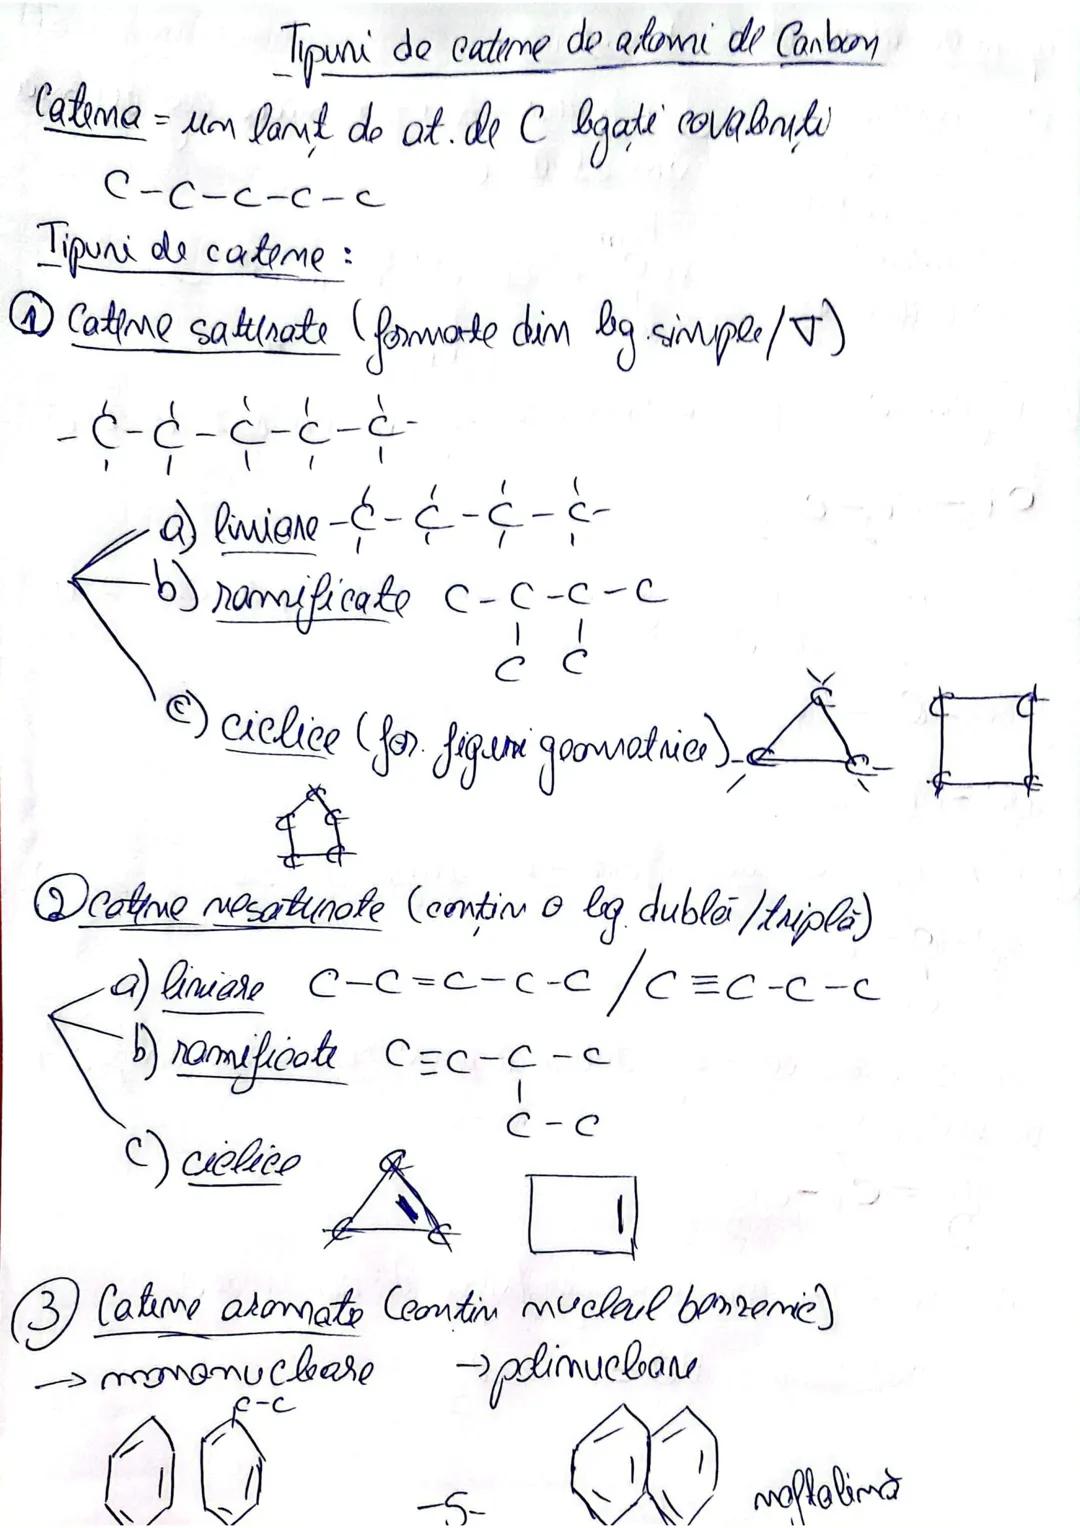 Tipuri de catene de atomi de Carbon
Catena = un lanț de at. de C legați covalenți
C-C-C-C-C
Tipuri de catene:
① Catene saturate (formate din leg. simple/σ)
-C-C-C-C-C-
a) liniare -C-C-C-C-
b) ramificate C-C-C-C
C C
c) ciclice (for. figuri geometrice)
C
C C
C C
C C
C
C C
C C
② catene nesaturate (conțin o leg. dublă/triplă)
a) liniare C-C=C-C-C/C≡C-C-C
b) ramificate C≡C-C-C
C-C
c) ciclice
C
C C
③ Catene aromate (conțin nucleul benzenic)
→ mononucleare → polinucleare
C-C
-5-
naftalină